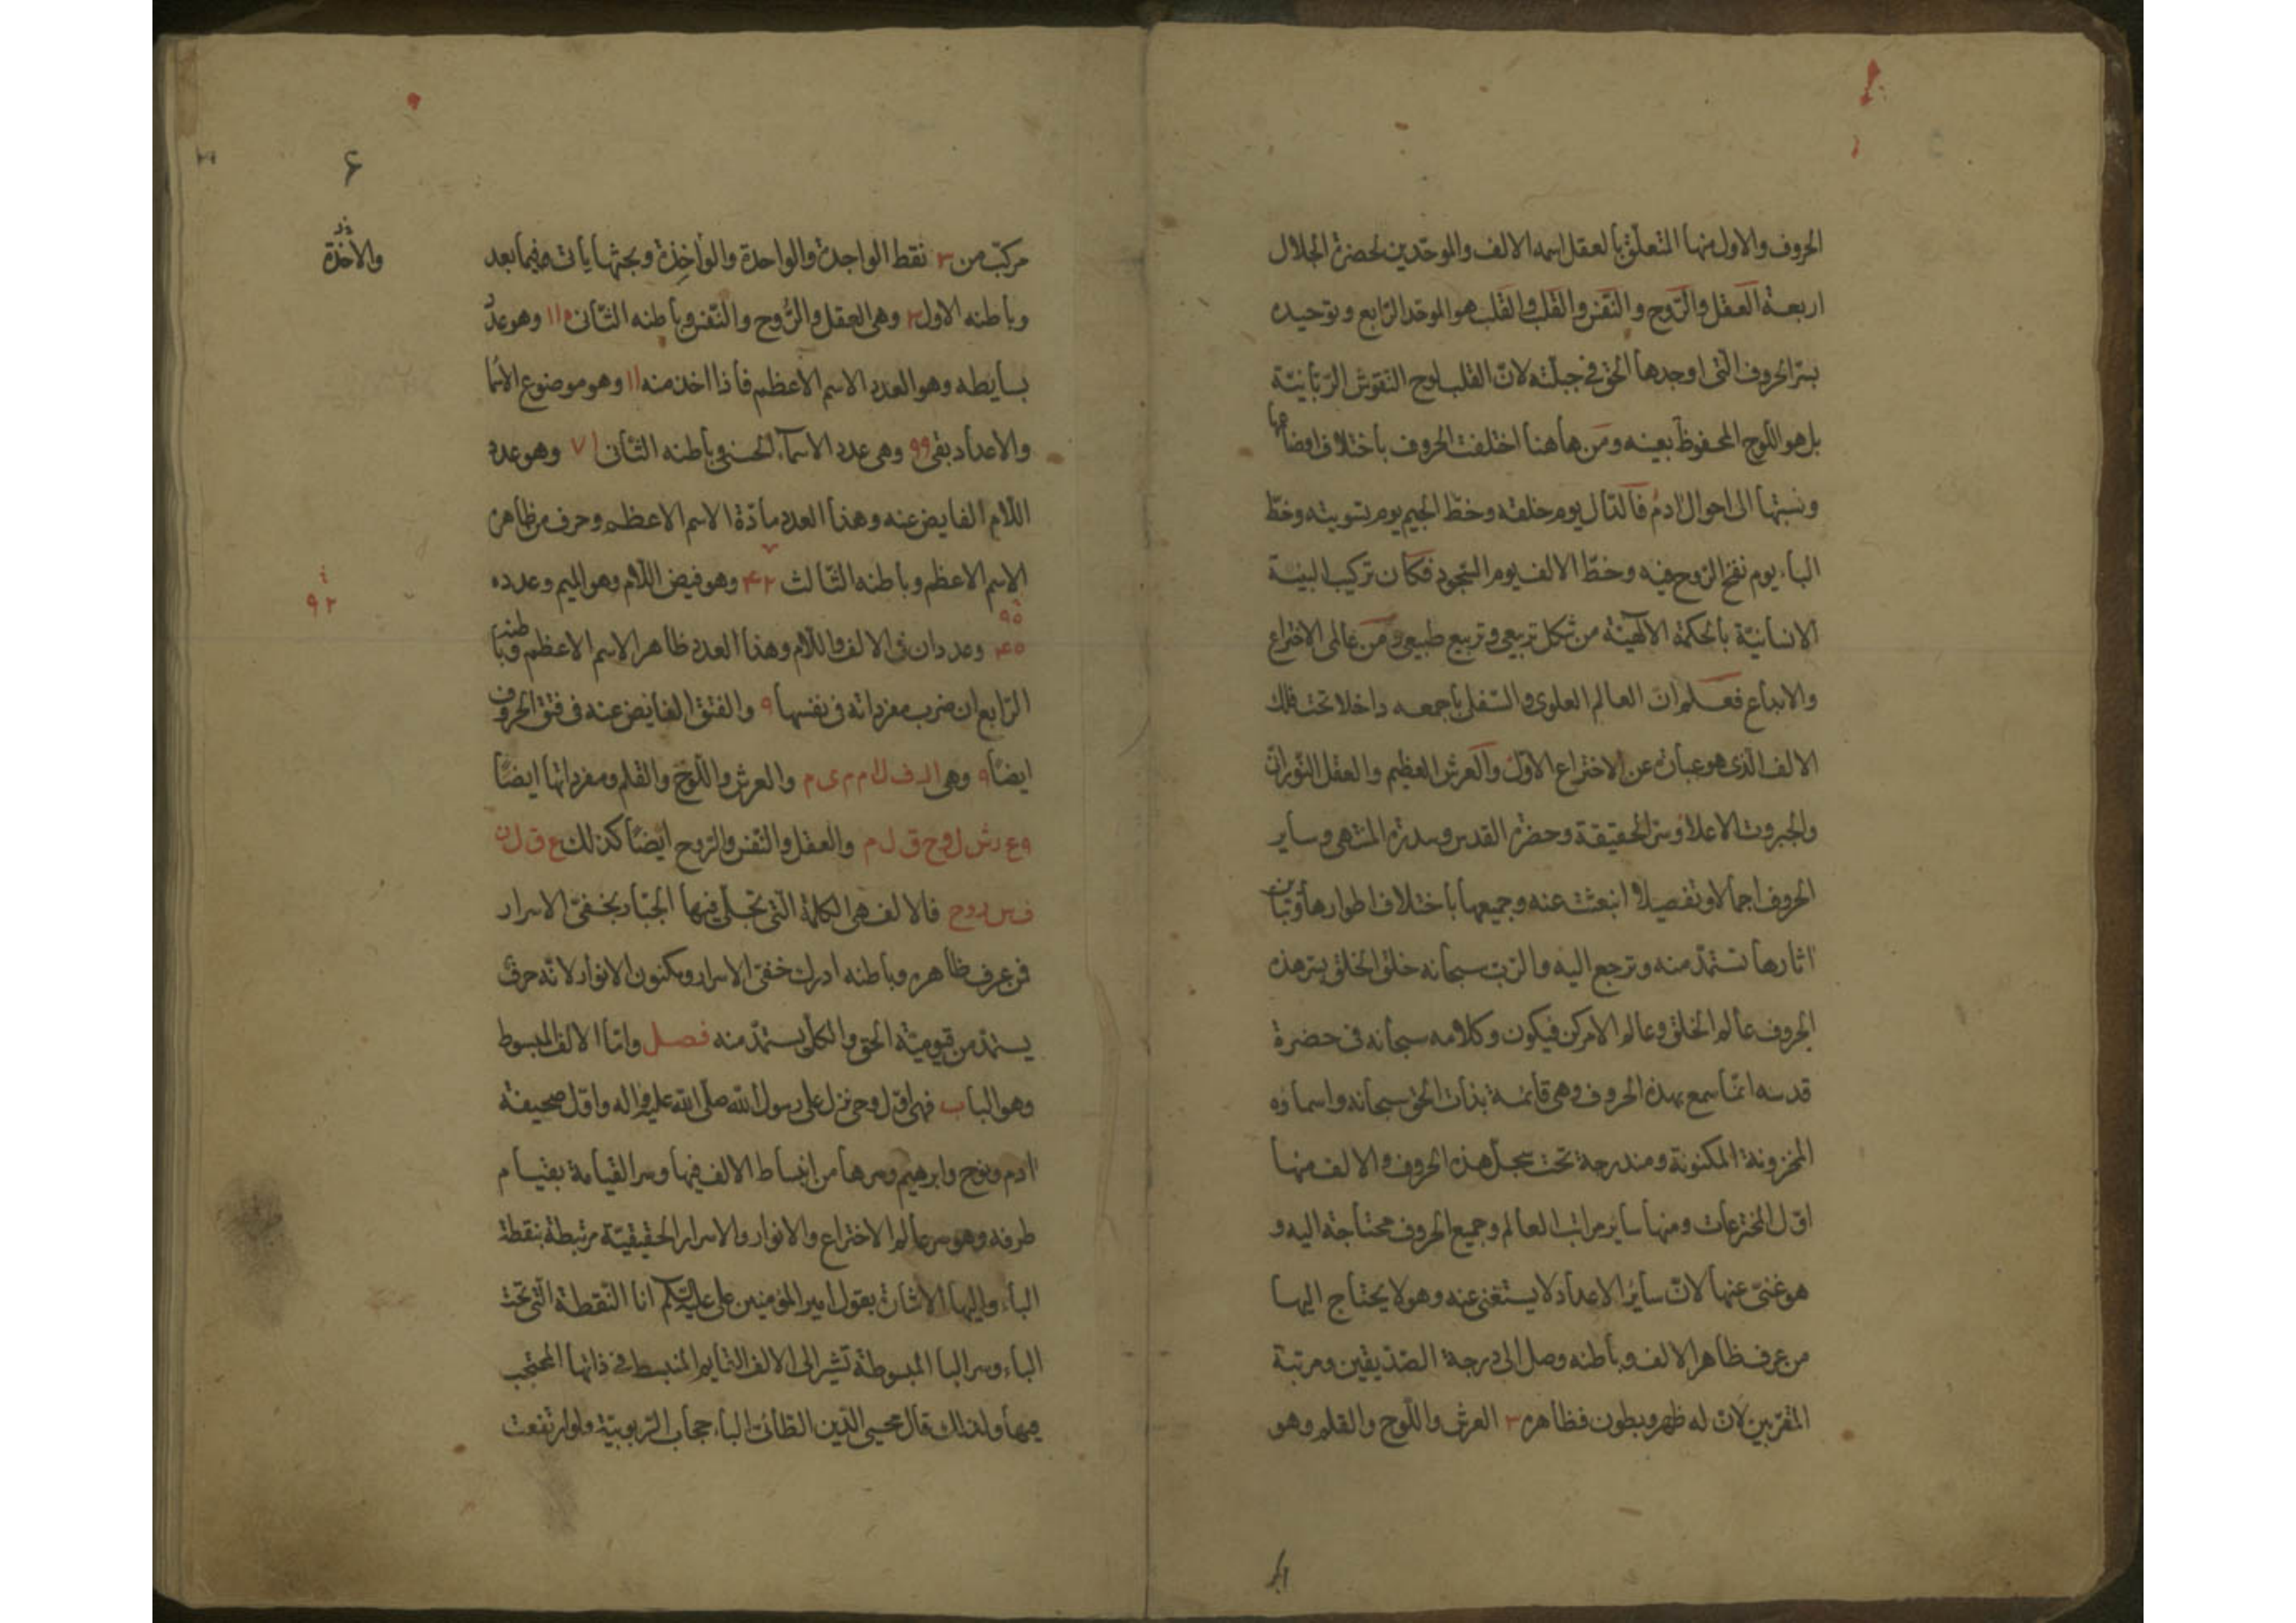 الحروف والاول منها المتعلق بالعقل اسمه الالف والموحّدين لحضرة الجلال
اربعة العقل والرّوح والنّفس والقلب والقلب هو الموحّد الرّابع وتوحيده
بسرّ الحروف الّتى اوجدها الحق فى جبلّته لانّ القلب لوح النقوش الرّبّانيّة
بل هو اللّوح المحفوظ بعينه ومن هاهنا اختلفت الحروف باختلاف اوضاعها
ونسبتها الى احوال ادم فالدّال يوم خلقه وخطّ الجيم يوم تسويته وخطّ
الباء يوم نفخ الرّوح فيه وخطّ الالف يوم السّجود فكان تركيب البنية
الانسانيّة بالحكمة الالهيّة من شكل تربيعى وتربيع طبيعى ومن عالمى الاختراع
والابداع فعلم ان العالم العلوى والسّفلى باجمعه داخلا تحت فلك
الالف الّذى هو عبارة عن الاختراع الاوّل والعرش العظيم والعقل النّورانى
والجبروت الاعلا وسرّ الحقيقة وحضرة القدس وسدرة المنتهى وساير
الحروف اجمالا وتفصيلا انبعثت عنه وجميعها باختلاف اطوارها وتباين
اثارها تستمدّ منه وترجع اليه والرّب سبحانه خلق الخلق بسرّ هذه
الحروف عالم الخلق وعالم الامر كن فيكون وكلامه سبحانه فى حضرة
قدسه انّما سمع بهذه الحروف وهى قائمة بذات الحق سبحانه واسماؤه
المخزونة المكنونة ومندرجة تحت سجلّ هذه الحروف والالف منها
اوّل المخترعات ومنها ساير مراتب العالم وجميع الحروف محتاجة اليه و
هو غنىّ عنها لانّ سائر الاعداد لا يستغنى عنه وهو لا يحتاج اليها
من عرف ظاهر الالف وباطنه وصل الى درجة الصّدّيقين ومرتبة
المقرّبين لانّ له ظهر وبطون فظاهره ٣ العرش واللّوح والقلم وهو
۶
مركّب من ٣ نقط الواجدة والواحدة والواخذة وبحثها ياتى فيما بعد
والاخذة
وباطنه الاول ٣ وهى العقل والرّوح والنّفس وباطنه الثّانى ١١٠ وهو عدد
بسايطه وهو العدد الاسم الاعظم فاذا اخذ منه ١١ وهو موضوع الاسما
والاعداد بقى ٩٩ وهى عدد الاسماء الحسنى وباطنه الثّانى ٧١ وهو عدد
اللّام الفايض عنه وهذا العدد مادّة الاسم الاعظم وحرف من ظاهر
الاسم الاعظم وباطنه الثّالث ۴٢ وهو فيض اللّام وهو الميم وعدده
٩٢
وعددان فى الالف واللّام وهذا العدد ظاهر الاسم الاعظم وباطنه
الرّابع ان ضرب مفرداته فى نفسها ٩ والفتق الفايض عنه فى فتق الحروف
ايضًا ٩ وهى ا ل ف ل ا م م ى م والعرش واللّوح والقلم ومفرداتها ايضًا
٩ ع ر ش ل و ح ق ل م والعقل والنّفس والرّوح ايضًا كذلك ع ق ل ن
ف س ر و ح فالالف هى الكلمة الّتى تجلّى فيها الجبّار بخفىّ الاسرار
فمن عرف ظاهره وباطنه ادرك خفىّ الاسرار ومكنون الانوار لانّه حرف
يستمدّ من قيوميّة الحق والكلّ يستمدّ منه فصل وامّا الالف المبسوط
وهو الباب فهى اوّل وحى نزل على رسول الله صلّى الله عليه واله واوّل صحيفة
ادم ونوح وابرهيم وسرها من انبساط الالف فيها وسر القيامة بقيام
طرفه وهو سر عالم الاختراع والانوار والاسرار الحقيقيّة مرتبطة بنقطة
الباء واليها الاشارة بقول امير المؤمنين على عليه السلام انا النّقطة الّتى تحت
الباء وسر البا المبسوطة تشير الى الالف القايم المنبسط فى ذاتها المحتجب
فيها ولذلك قال محيى الدّين الطّائى الباء حجاب الرّبوبيّة ولو ارتفعت